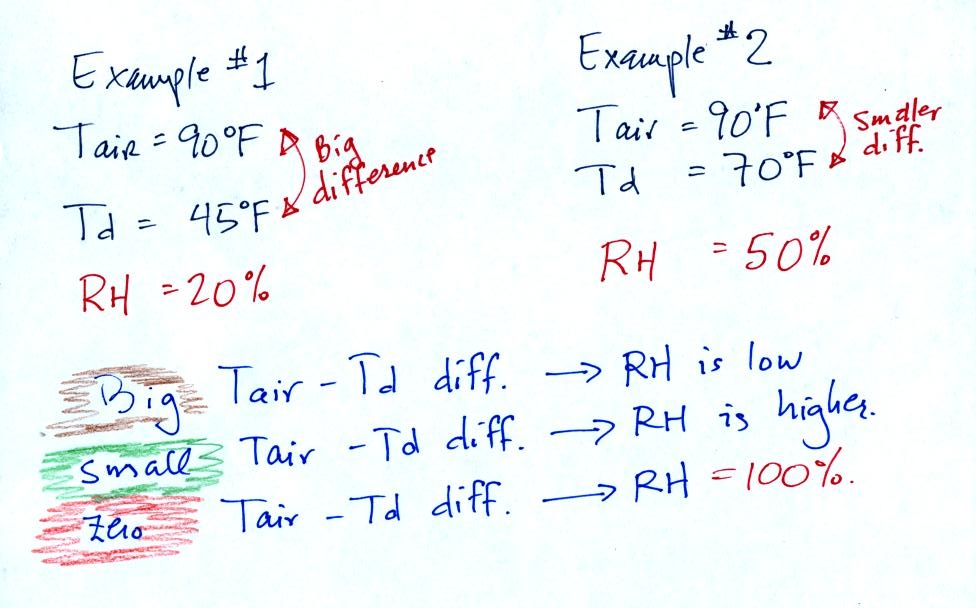 Example #1
Tair = 90°F
Big difference
Td = 45°F
RH = 20%
Example #2
Tair = 90°F
Smaller diff.
Td = 70°F
RH = 50%
Big Tair - Td diff. → RH is low
small Tair - Td diff. → RH is higher.
zero Tair - Td diff. → RH = 100%.